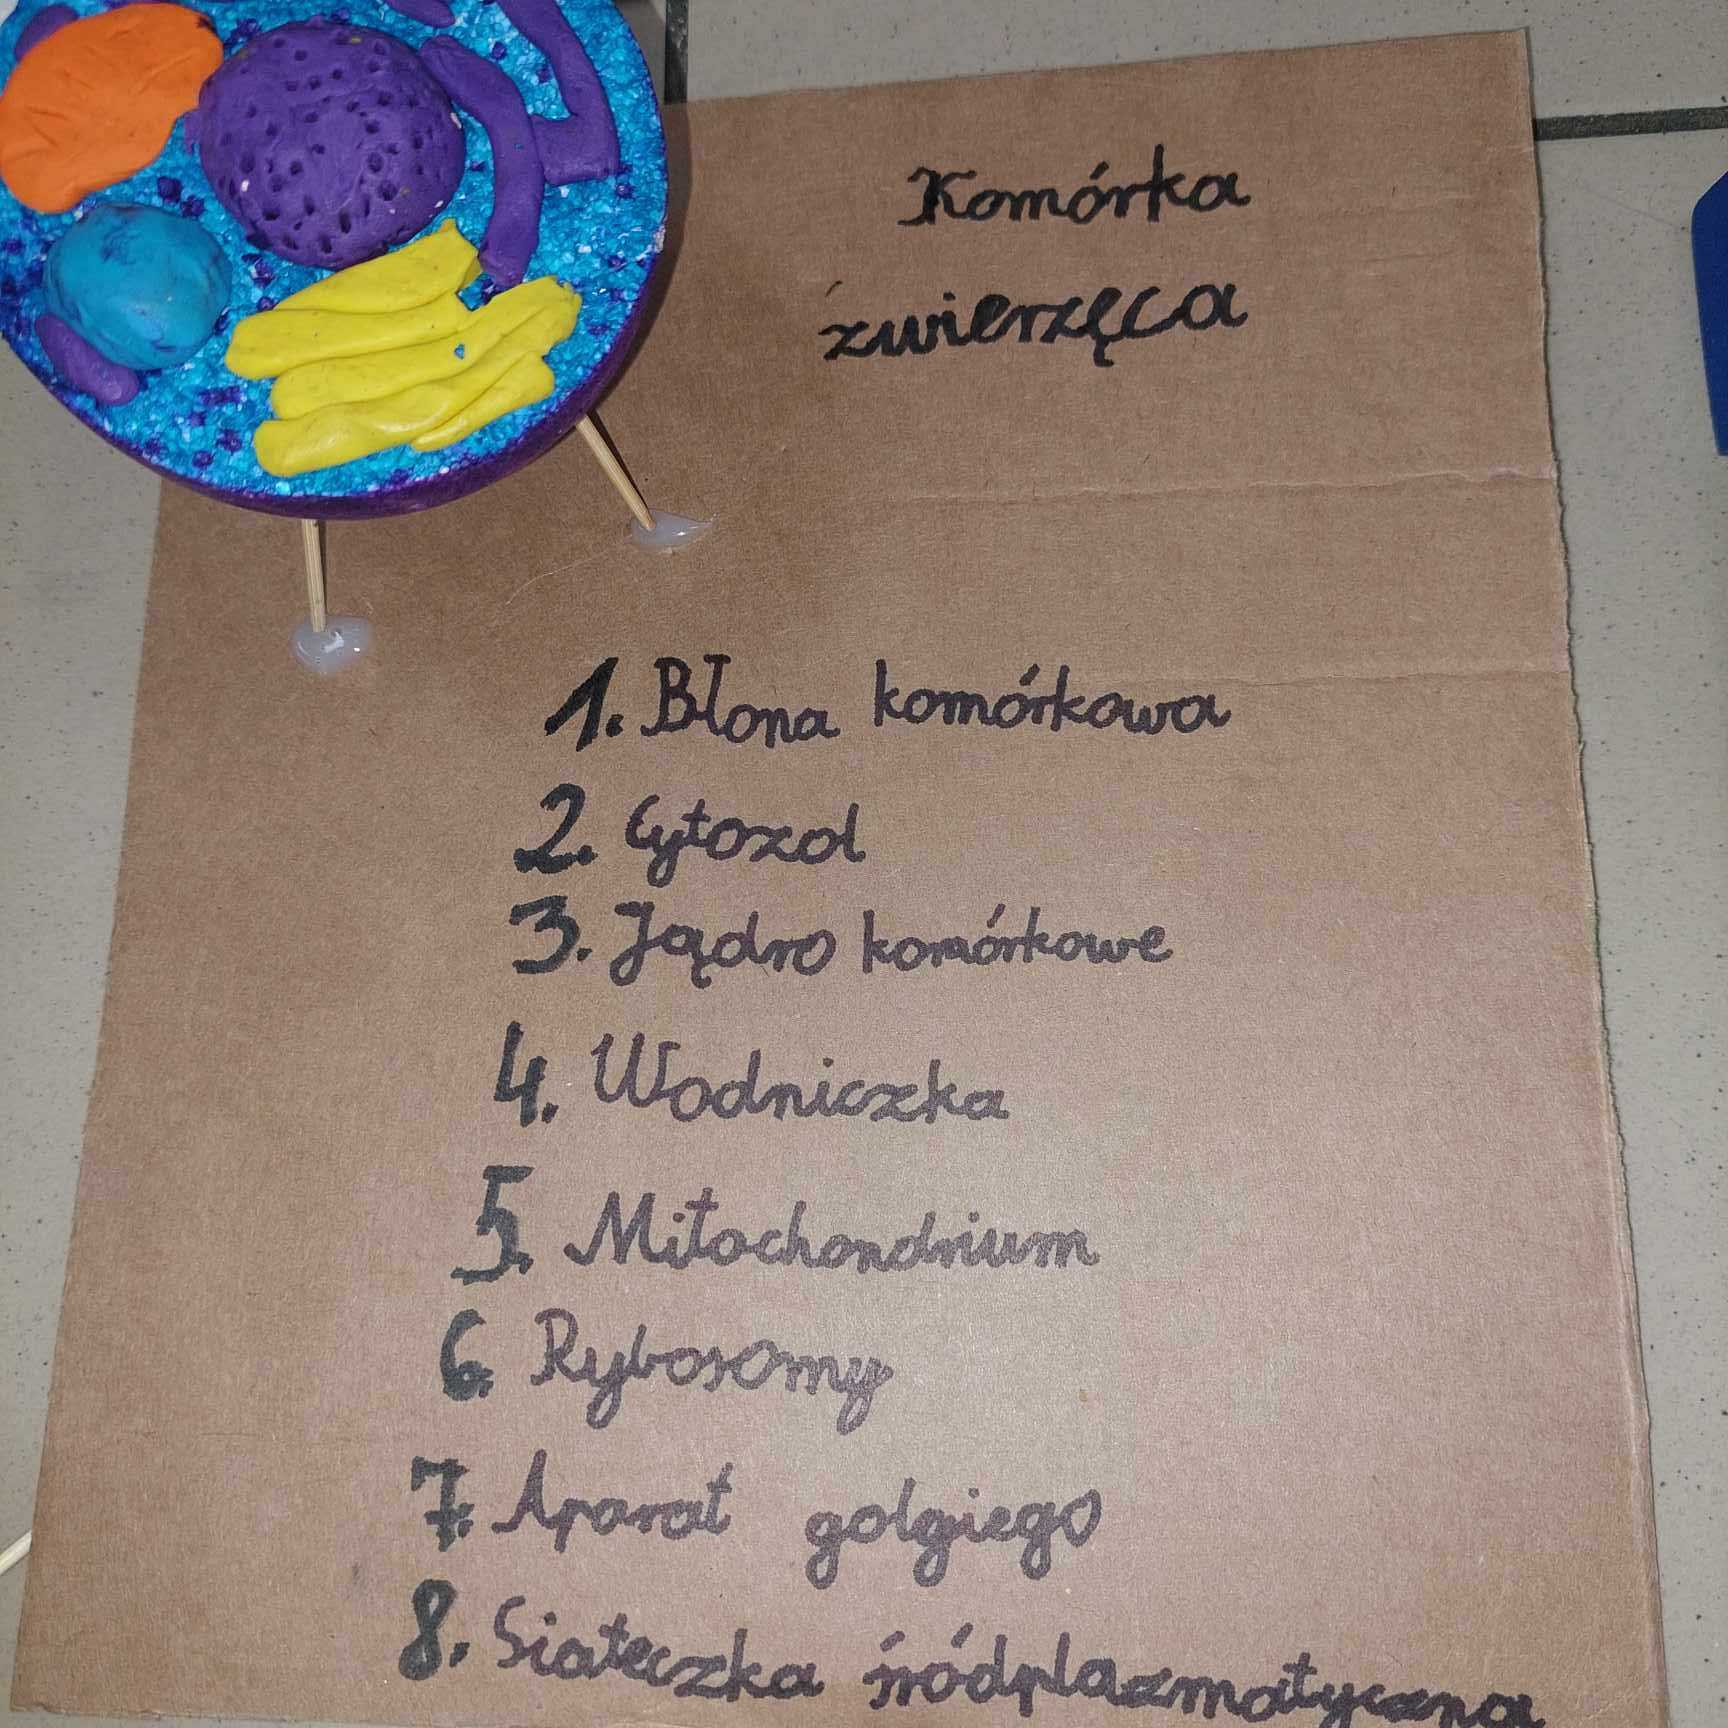 Komórka
zwierzęca
1. Błona komórkowa
2. Cytozol
3. Jądro komórkowe
4. Wodniczka
5. Mitochondrium
6. Rybosomy
7. Aparat golgiego
8. Siateczka śródplazmatyczna